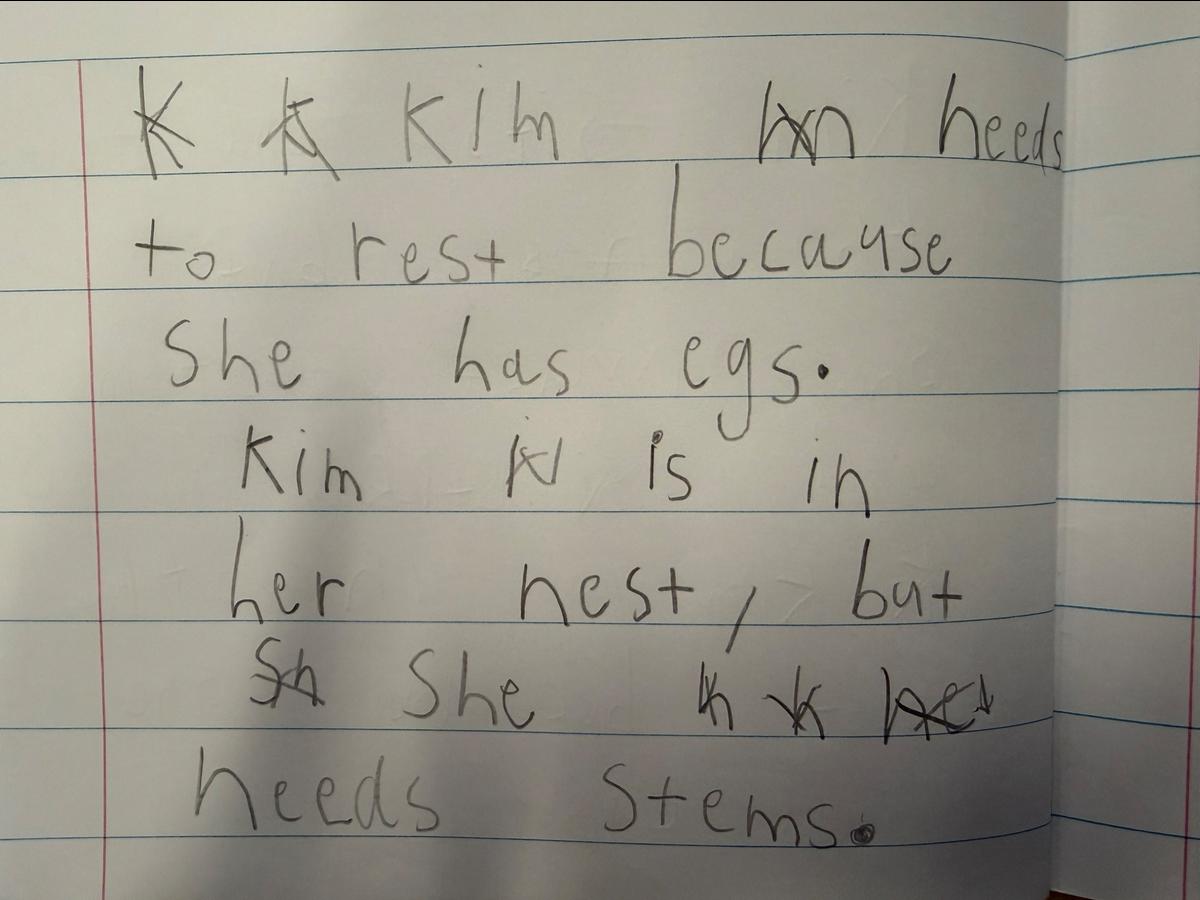 Kim needs
to rest because
She has egs.
Kim is in
her nest, but
She
needs Stems.